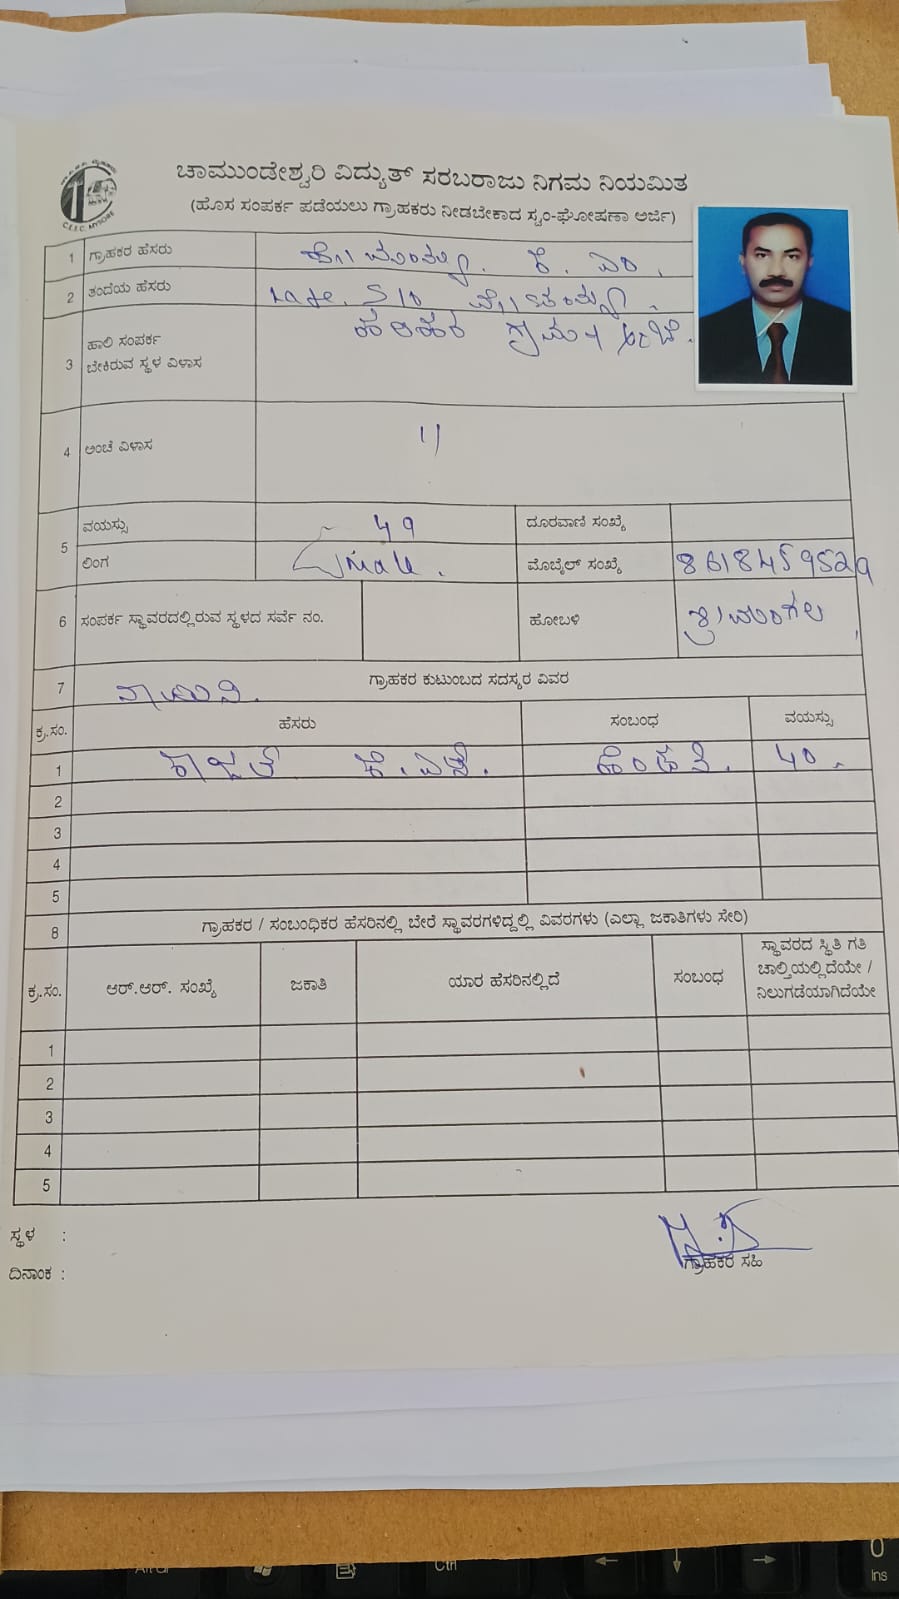 ಚಾಮುಂಡೇಶ್ವರಿ ವಿದ್ಯುತ್ ಸರಬರಾಜು ನಿಗಮ ನಿಯಮಿತ
(ಹೊಸ ಸಂಪರ್ಕ ಪಡೆಯಲು ಗ್ರಾಹಕರು ನೀಡಬೇಕಾದ ಸ್ವಂ-ಘೋಷಣಾ ಅರ್ಜಿ)
C.E.S.C. MYSORE
1 ಗ್ರಾಹಕರ ಹೆಸರು ಕೆ. ಎಂ.
2 ತಂದೆಯ ಹೆಸರು Late. S/o
3 ಹಾಲಿ ಸಂಪರ್ಕ ಬೇಕಿರುವ ಸ್ಥಳ ವಿಳಾಸ ಹರಿಹರ ಗ್ರಾಮ ಅಂಚೆ.
4 ಅಂಚೆ ವಿಳಾಸ 11
5 ವಯಸ್ಸು 49 ದೂರವಾಣಿ ಸಂಖ್ಯೆ
ಲಿಂಗ male. ಮೊಬೈಲ್ ಸಂಖ್ಯೆ 8618459529
6 ಸಂಪರ್ಕ ಸ್ಥಾವರದಲ್ಲಿರುವ ಸ್ಥಳದ ಸರ್ವೆ ನಂ. ಹೋಬಳಿ ಶ್ರೀಮಂಗಲ
7 ಗ್ರಾಹಕರ ಕುಟುಂಬದ ಸದಸ್ಯರ ವಿವರ
ಕ್ರ.ಸಂ. ಹೆಸರು ಸಂಬಂಧ ವಯಸ್ಸು
1 ಕೆ. ಎಸ್. ಹೆಂಡತಿ. 40.
2
3
4
5
8 ಗ್ರಾಹಕರ / ಸಂಬಂಧಿಕರ ಹೆಸರಿನಲ್ಲಿ ಬೇರೆ ಸ್ಥಾವರಗಳಿದ್ದಲ್ಲಿ ವಿವರಗಳು (ಎಲ್ಲಾ ಜಕಾತಿಗಳು ಸೇರಿ)
ಕ್ರ.ಸಂ. ಆರ್.ಆರ್. ಸಂಖ್ಯೆ ಜಕಾತಿ ಯಾರ ಹೆಸರಿನಲ್ಲಿದೆ ಸಂಬಂಧ ಸ್ಥಾವರದ ಸ್ಥಿತಿ ಗತಿ ಚಾಲ್ತಿಯಲ್ಲಿದೆಯೇ / ನಿಲುಗಡೆಯಾಗಿದೆಯೇ
1
2
3
4
5
ಸ್ಥಳ :
ಗ್ರಾಹಕರ ಸಹಿ
ದಿನಾಂಕ :
Alt Gr
Ctrl
0
Ins